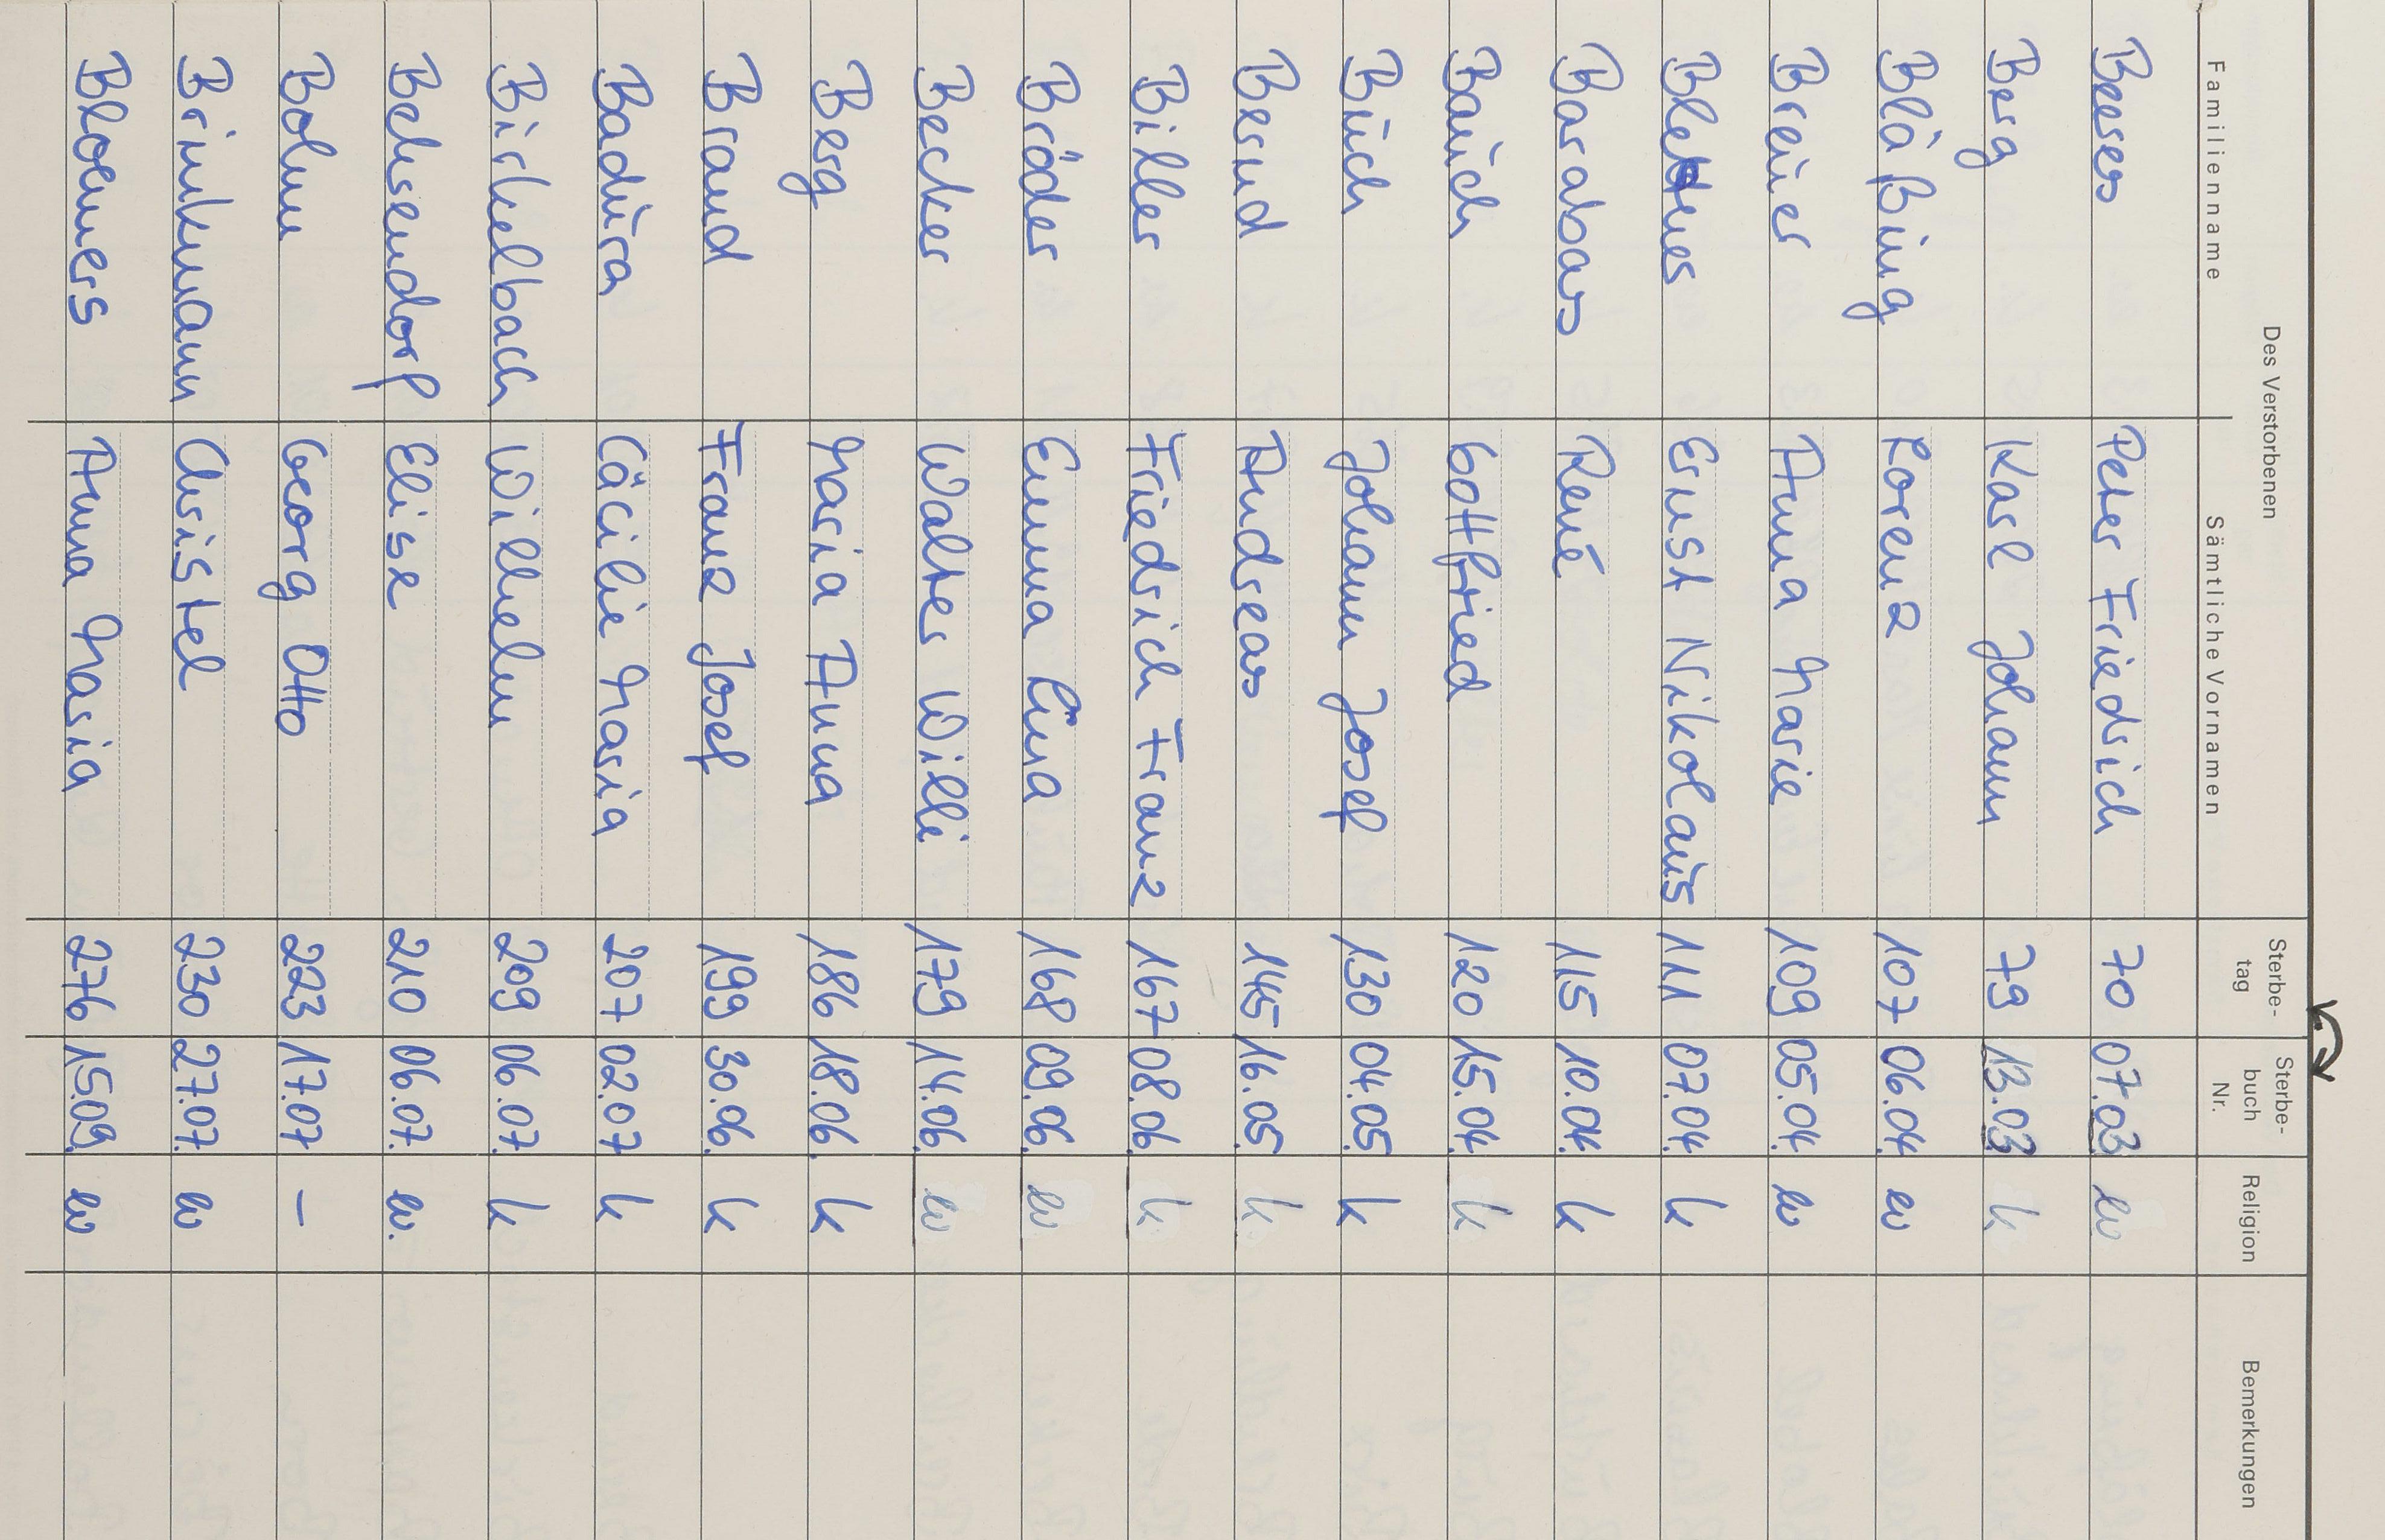 Des Verstorbenen
Familienname Sämtliche Vornamen Sterbe-tag Sterbe-buch Nr. Religion Bemerkungen
Beeres Peter Friedrich 70 07.03 ev
Berg Karl Johann 79 13.03 k
Blaßing Lorenz 107 06.04. ev
Breuer Anna Marie 109 05.04. ev
Ernst Nikolaus 111 07.04. k
Barabas René 115 10.04. k
Bauch Gottfried 120 15.04. k
Buch Johann Josef 130 04.05. k
Bernd Andreas 145 16.05. k
Biller Friedrich Franz 167 08.06. k
Bröder Emma Lina 168 09.06. ev
Becker Walter Willi 179 14.06. ev
Berg Maria Anna 186 18.06. k
Brand Franz Josef 199 30.06. k
Badura Cäcilie Maria 207 02.07 k
Birkelbach Wilhelm 209 06.07. k
Behrendorf Elise 210 06.07. ev.
Bohm Georg Otto 223 17.07 –
Brinkmann Christel 230 27.07. ev
Bloemers Anna Maria 276 15.09. ev